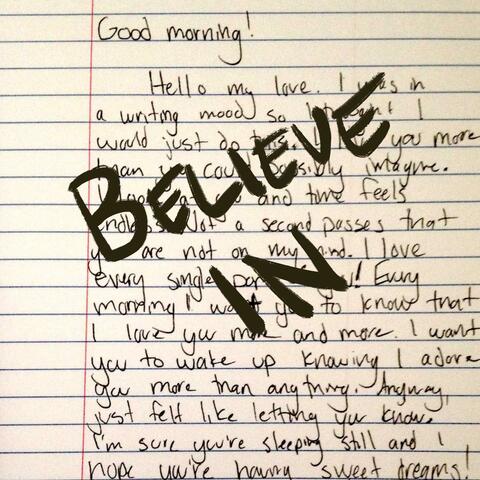 Good morning!
Hello my love. I was in
a writing mood so I thought I
would just do this. I love you more
than you could possibly imagine.
and time feels
endless. Not a second passes that
you are not on my mind. I love
every single part of you! Every
morning I want you to know that
I love you more and more. I want
you to wake up knowing I adore
you more than anything. Anyway,
just felt like letting you know.
I'm sure you're sleeping still and I
hope you're having sweet dreams!
BELIEVE
IN